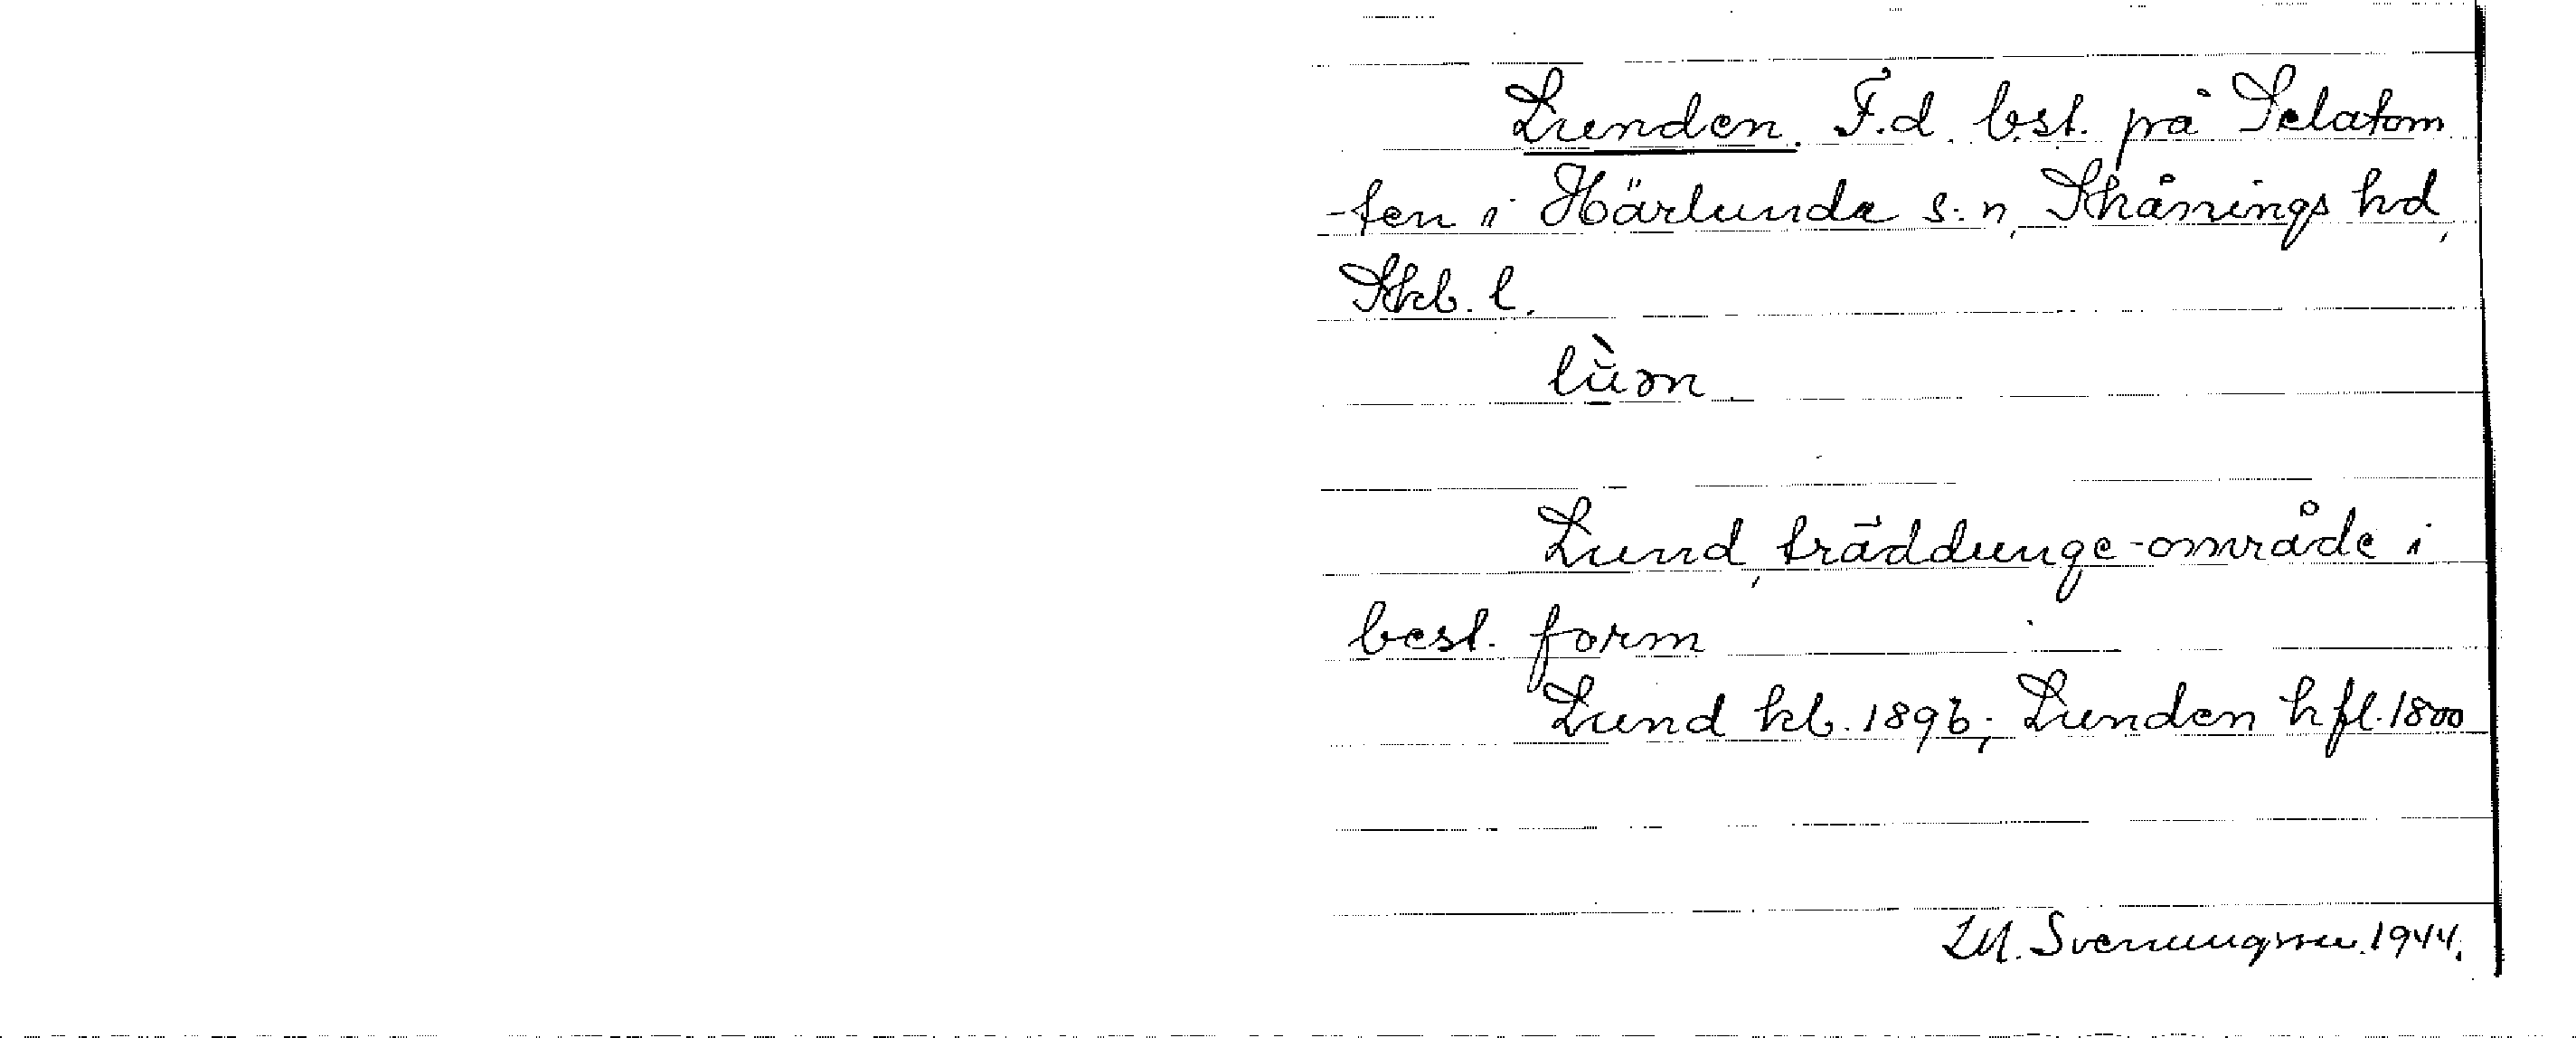 Lunden. F.d. bst. på Selatom
-ten i Härlunda s:n, Skånings hd,
Skb. l.
lùən
Lund, träddunge-område i
best. form
Lund kb. 1896; Lunden hfl. 1800
M. Svenungsson. 1944.